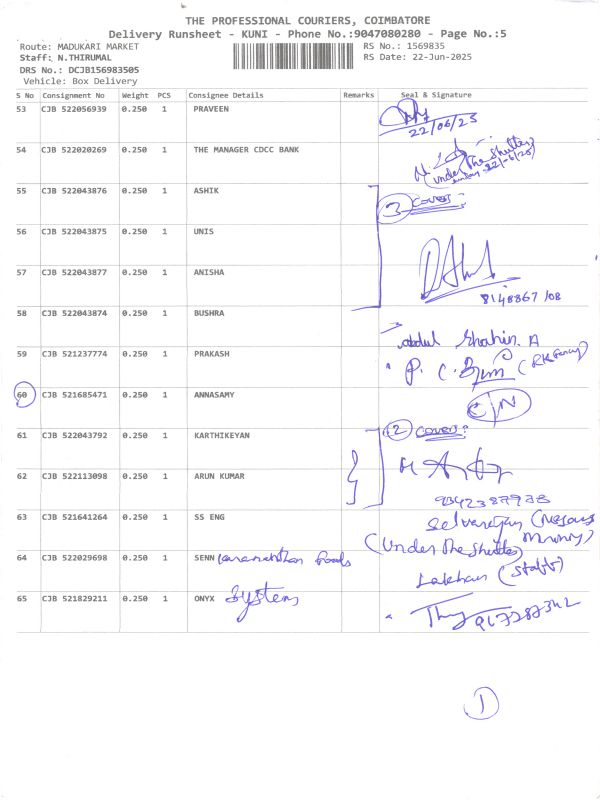 THE PROFESSIONAL COURIERS, COIMBATORE
Delivery Runsheet - KUNI - Phone No.:9047080280 - Page No.:5
Route: MADUKARI MARKET RS No.: 1569835
Staff: N.THIRUMAL RS Date: 22-Jun-2025
DRS No.: DCJB156983505
Vehicle: Box Delivery
S No Consignment No Weight PCS Consignee Details Remarks Seal & Signature
53 CJB 522056939 0.250 1 PRAVEEN
22/06/25
54 CJB 522020269 0.250 1 THE MANAGER CDCC BANK
(Under The Shutter
55 CJB 522043876 0.250 1 ASHIK
3 Covers
56 CJB 522043875 0.250 1 UNIS
57 CJB 522043877 0.250 1 ANISHA
8148867108
58 CJB 522043874 0.250 1 BUSHRA
abdul Shahin. A
59 CJB 521237774 0.250 1 PRAKASH
60 CJB 521685471 0.250 1 ANNASAMY
C/N
61 CJB 522043792 0.250 1 KARTHIKEYAN
2 Covers
62 CJB 522113098 0.250 1 ARUN KUMAR
63 CJB 521641264 0.250 1 SS ENG
(Under The Shutter)
64 CJB 522029698 0.250 1 SENN foods
Lakhan (Staff)
65 CJB 521829211 0.250 1 ONYX Systems
1